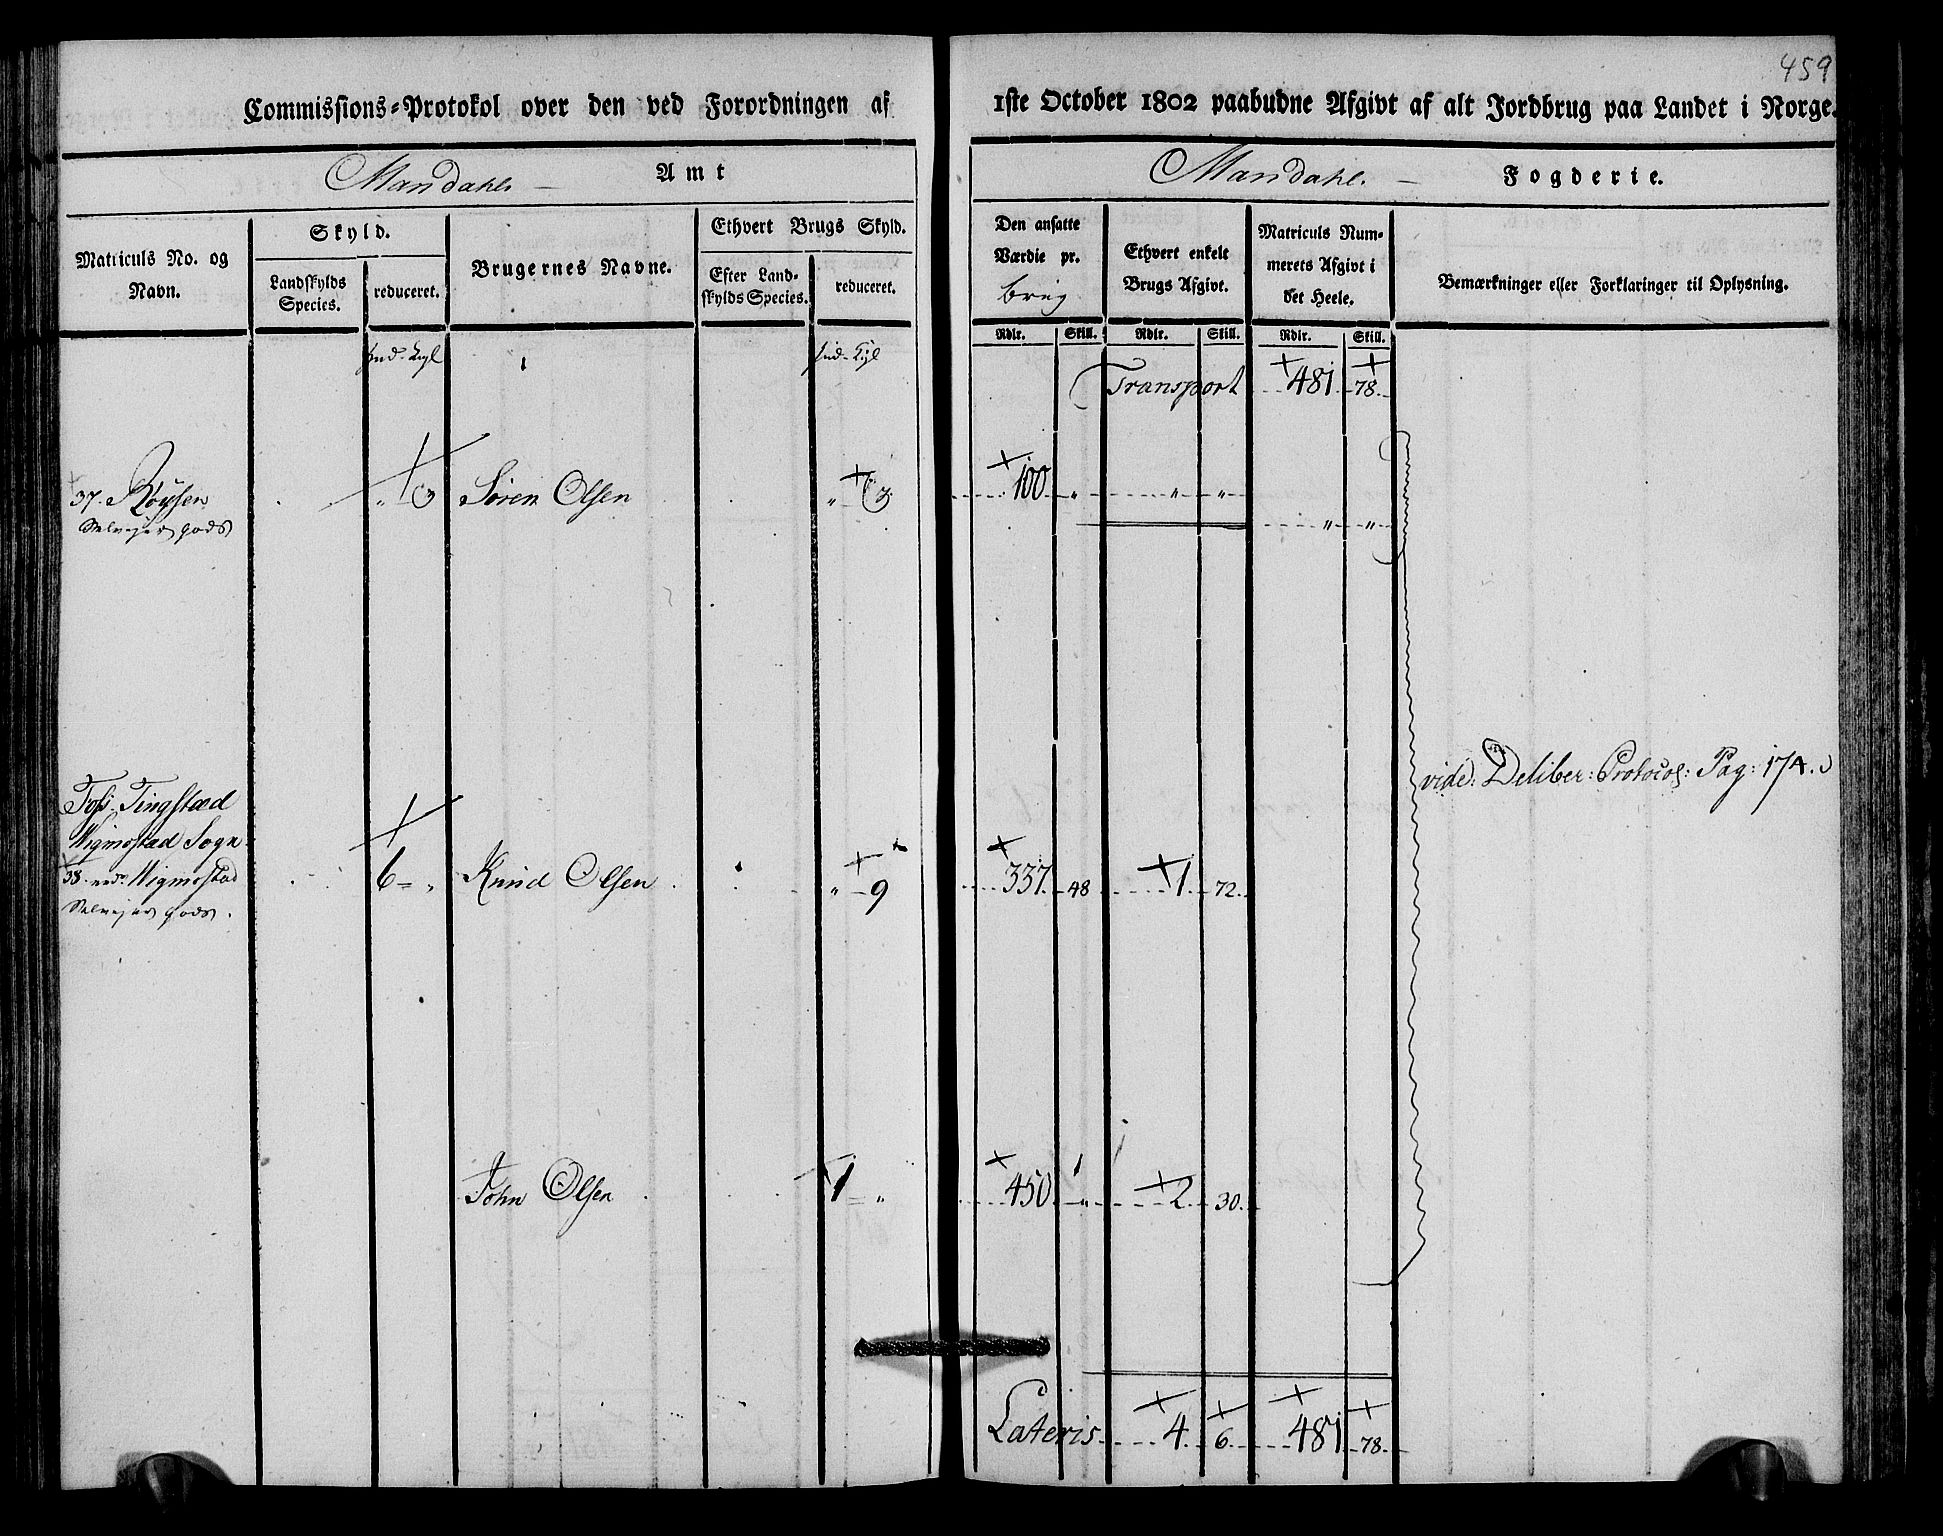 459
Commissions-Protokol over den ved Forordningen af 1ste October 1802 paabudne Afgivt af alt Jordbrug paa Landet i Norge.
Mandahls Amt
Mandahls Fogderie.
Matriculs No. og Navn.
Skyld.
Landskylds Species.
reduceret.
Brugernes Navne.
Ethvert Brugs Skyld.
Efter Landskylds Species.
reduceret.
Den ansatte Værdie pr. brug
Ethvert enkelt Brugs Afgivt.
Matriculs Nummerets Afgivt i det Heele.
Bemærkninger eller Forklaringer til Oplysning.
Rdlr. Skill. Rdlr. Skill. Rdlr. Skill.
Transport 481 78
37. Røysen " 3 Sören Olsen " 3 100 " " "
Selvejer gods " "
vide: Deliber: Protocol: Pag: 174.
Foss Tingstæd
Wigmostad Sogn
38. Wigmostad 6 " Knud Olsen " 9 337 48 1 72
Selvejer gods.
John Olsen 1 " 450 " 2 30
Lateris 4 6 481 78